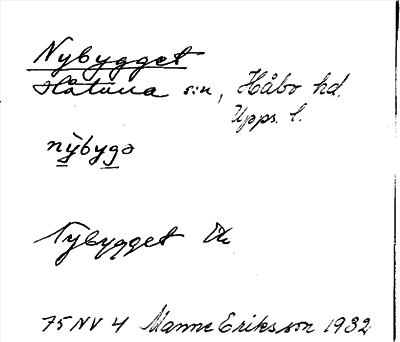 Nybygget
Håtuna s:n, Håbo hd.
Upps. l.
nỳbygə
Nybygget
75 NV 4 Manne Eriksson 1932